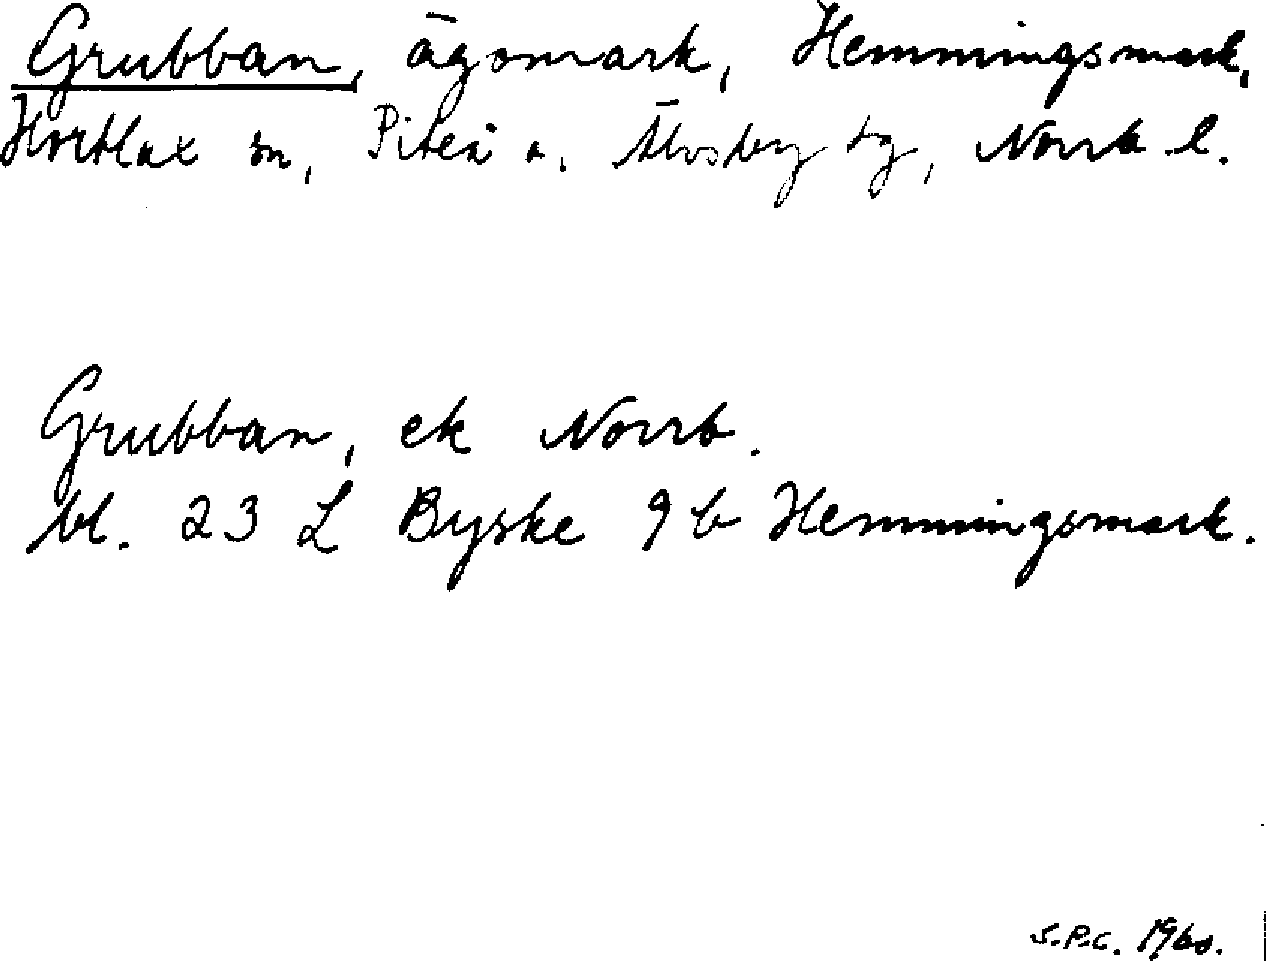 Grubban, ägomark, Hemmingsmark,
Hortlax sn, Piteå o. Älvsby tg, Norrb l.
Grubban, ek Norrb.
bl. 23 L Byske 9 b Hemmingsmark.
S.P.C. 1960.